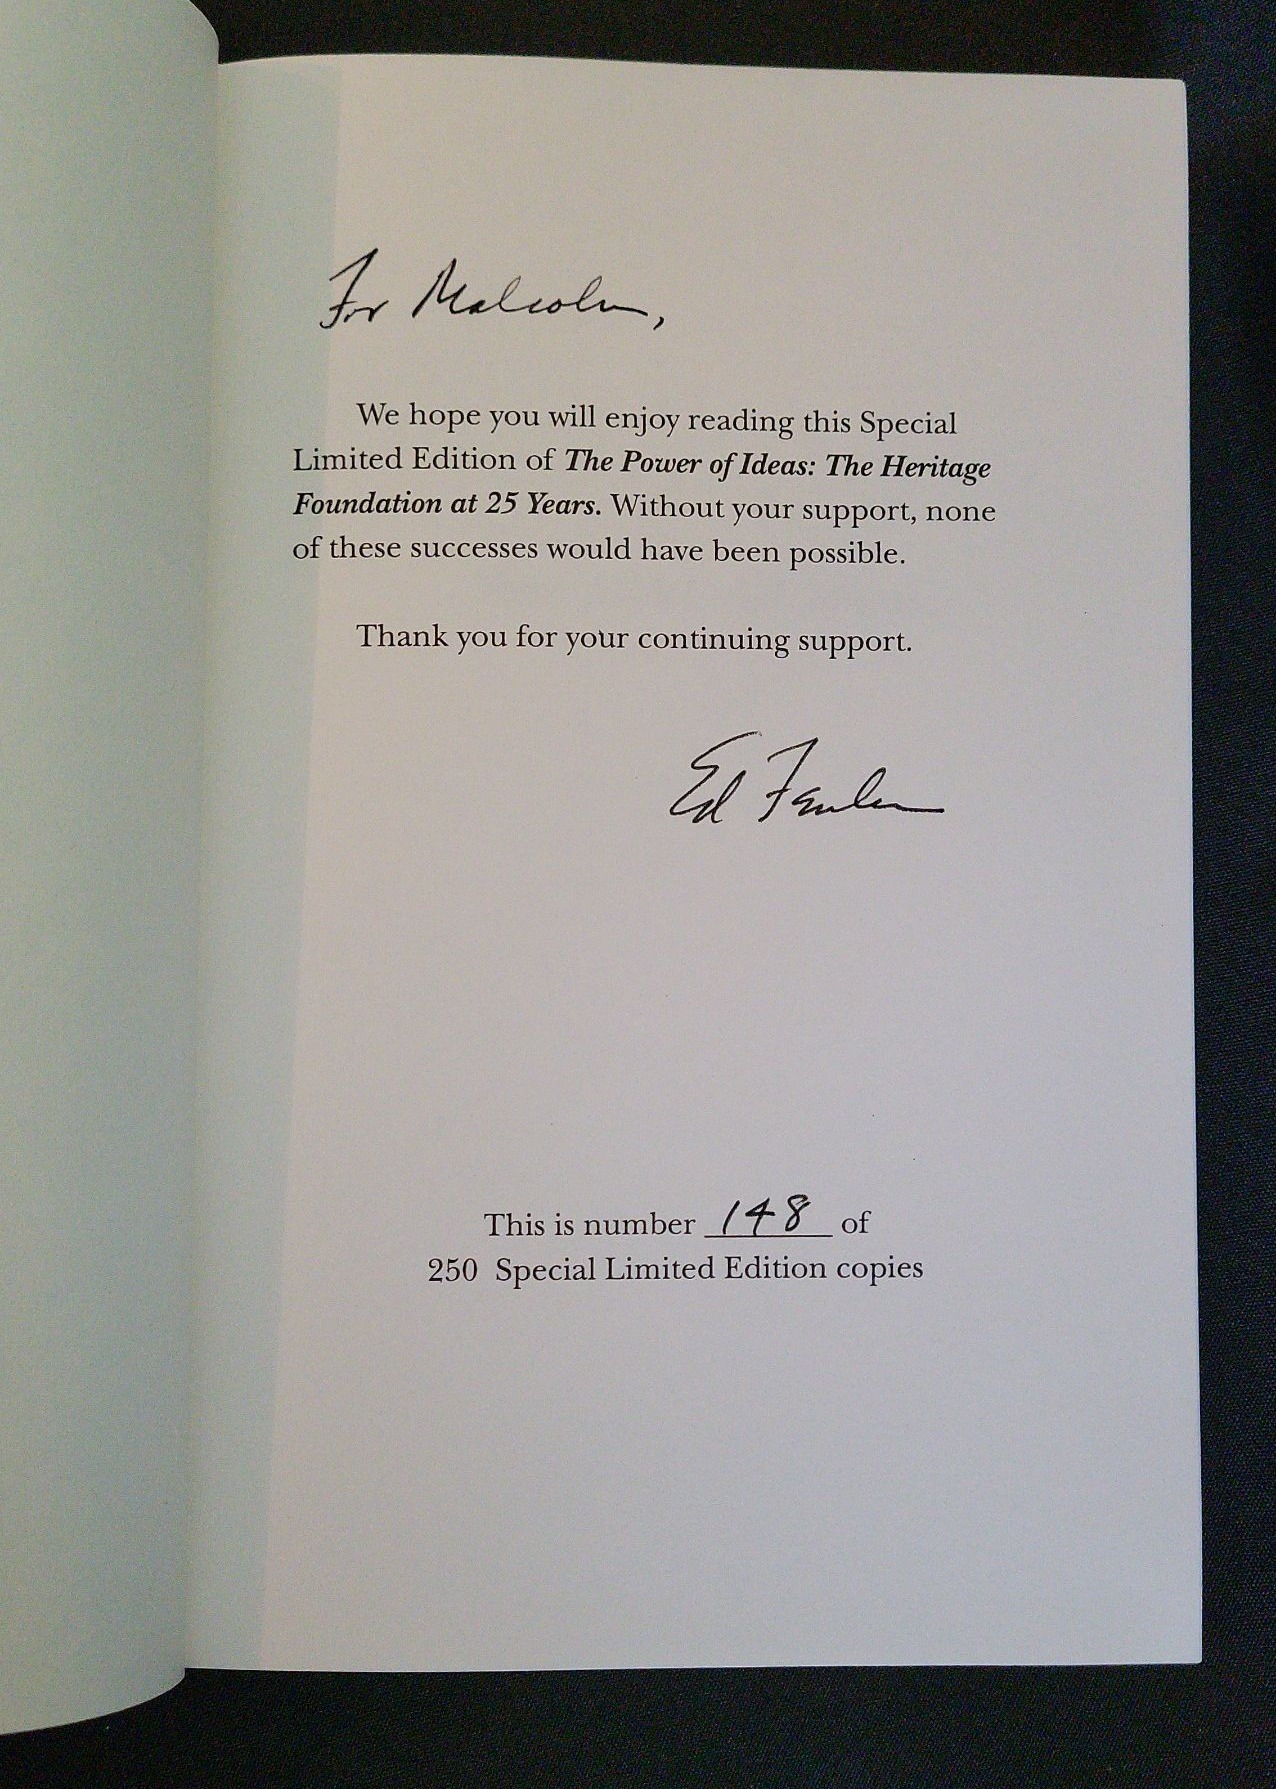 For Malcolm,
We hope you will enjoy reading this Special
Limited Edition of The Power of Ideas: The Heritage
Foundation at 25 Years. Without your support, none
of these successes would have been possible.
Thank you for your continuing support.
Ed Feulner
This is number 148 of
250 Special Limited Edition copies